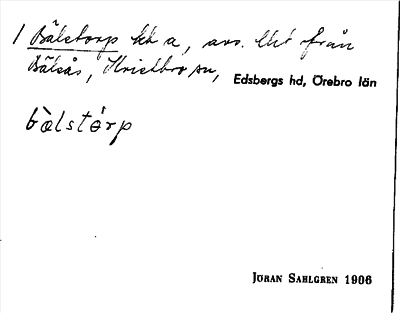 1 Bälstorp hk a, avs. lht från
Bälsås, Kvistbro sn, Edsbergs hd, Örebro län
bälstórp
JÖRAN SAHLGREN 1906